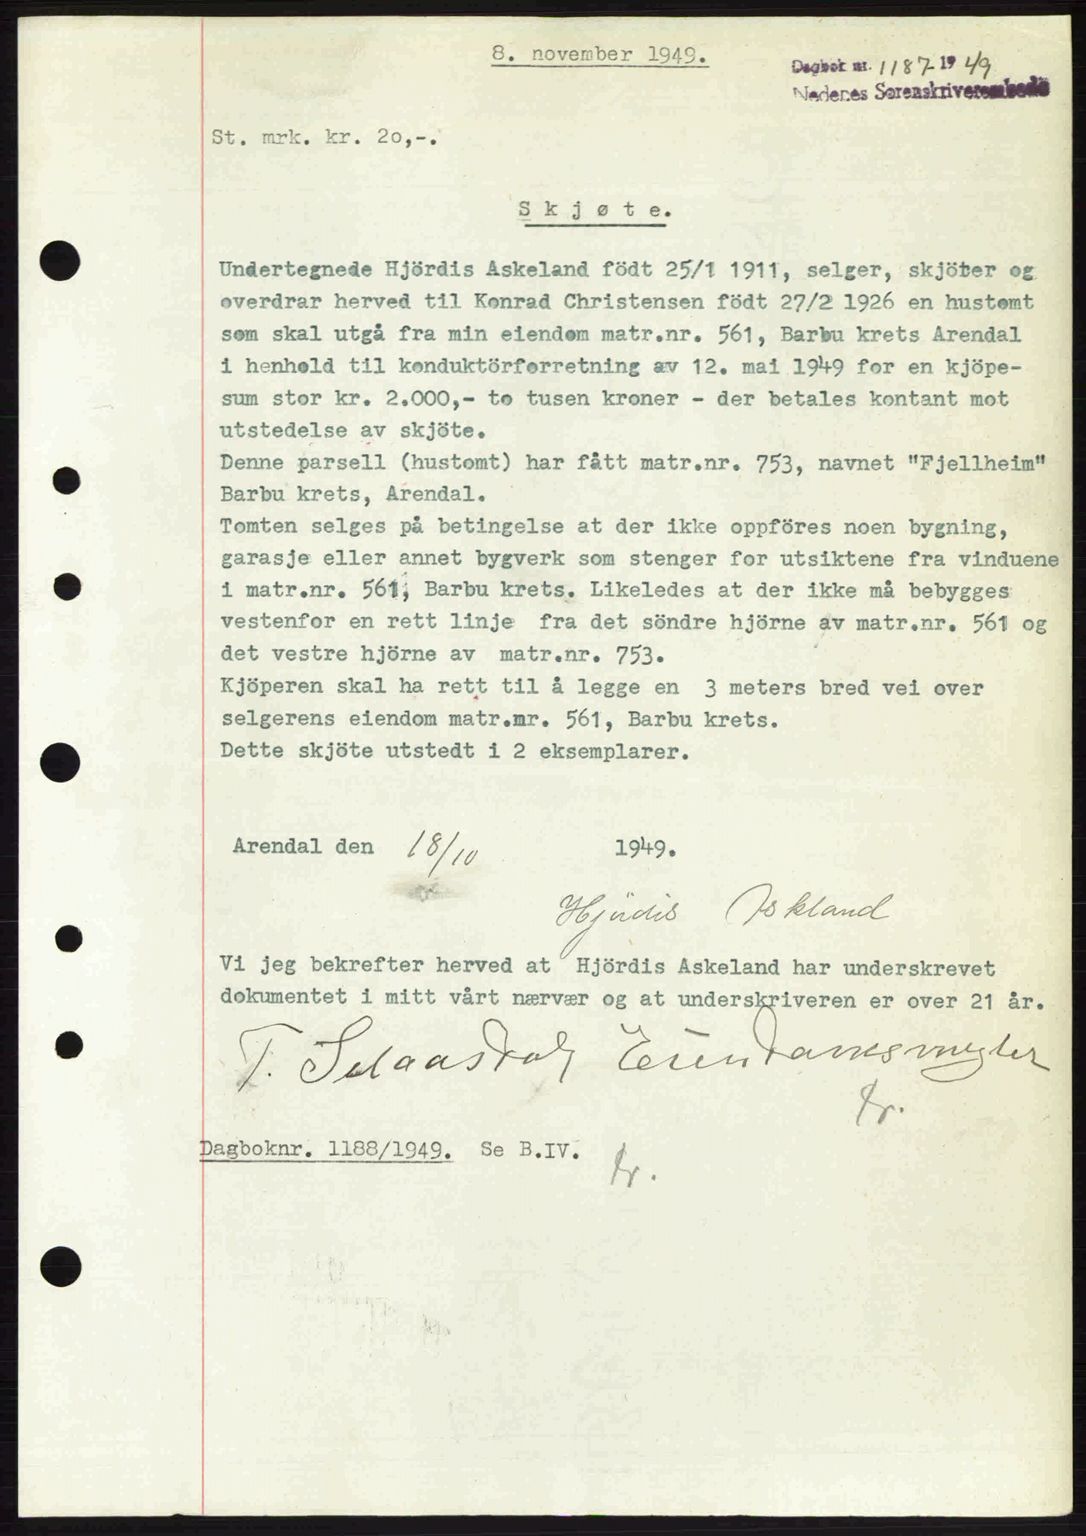 8. november 1949.
Dagbok nr. 1187 1949
Nedenes Sorenskriverembede
St. mrk. kr. 2o,-.
Skjøte.
Undertegnede Hjördis Askeland födt 25/1 1911, selger, skjöter og
overdrar herved til Konrad Christensen födt 27/2 1926 en hustomt
som skal utgå fra min eiendom matr.nr. 561, Barbu krets Arendal
i henhold til konduktörforretning av 12. mai 1949 for en kjöpe-
sum stor kr. 2.000,- to tusen kroner - der betales kontant mot
utstedelse av skjöte.
Denne parsell (hustomt) har fått matr.nr. 753, navnet "Fjellheim"
Barbu krets, Arendal.
Tomten selges på betingelse at der ikke oppföres noen bygning,
garasje eller annet bygverk som stenger for utsiktene fra vinduene
i matr.nr. 561, Barbu krets. Likeledes at der ikke må bebygges
vestenfor en rett linje fra det söndre hjörne av matr.nr. 561 og
det vestre hjörne av matr.nr. 753.
Kjöperen skal ha rett til å legge en 3 meters bred vei over
selgerens eiendom matr.nr. 561, Barbu krets.
Dette skjöte utstedt i 2 eksemplarer.
Arendal den 18/10 1949.
Hjördis Askland
Vi jeg bekrefter herved at Hjördis Askeland har underskrevet
dokumentet i mitt vårt nærvær og at underskriveren er over 21 år.
T. Eiendomsmegler
Dagboknr. 1188/1949. Se B.IV.